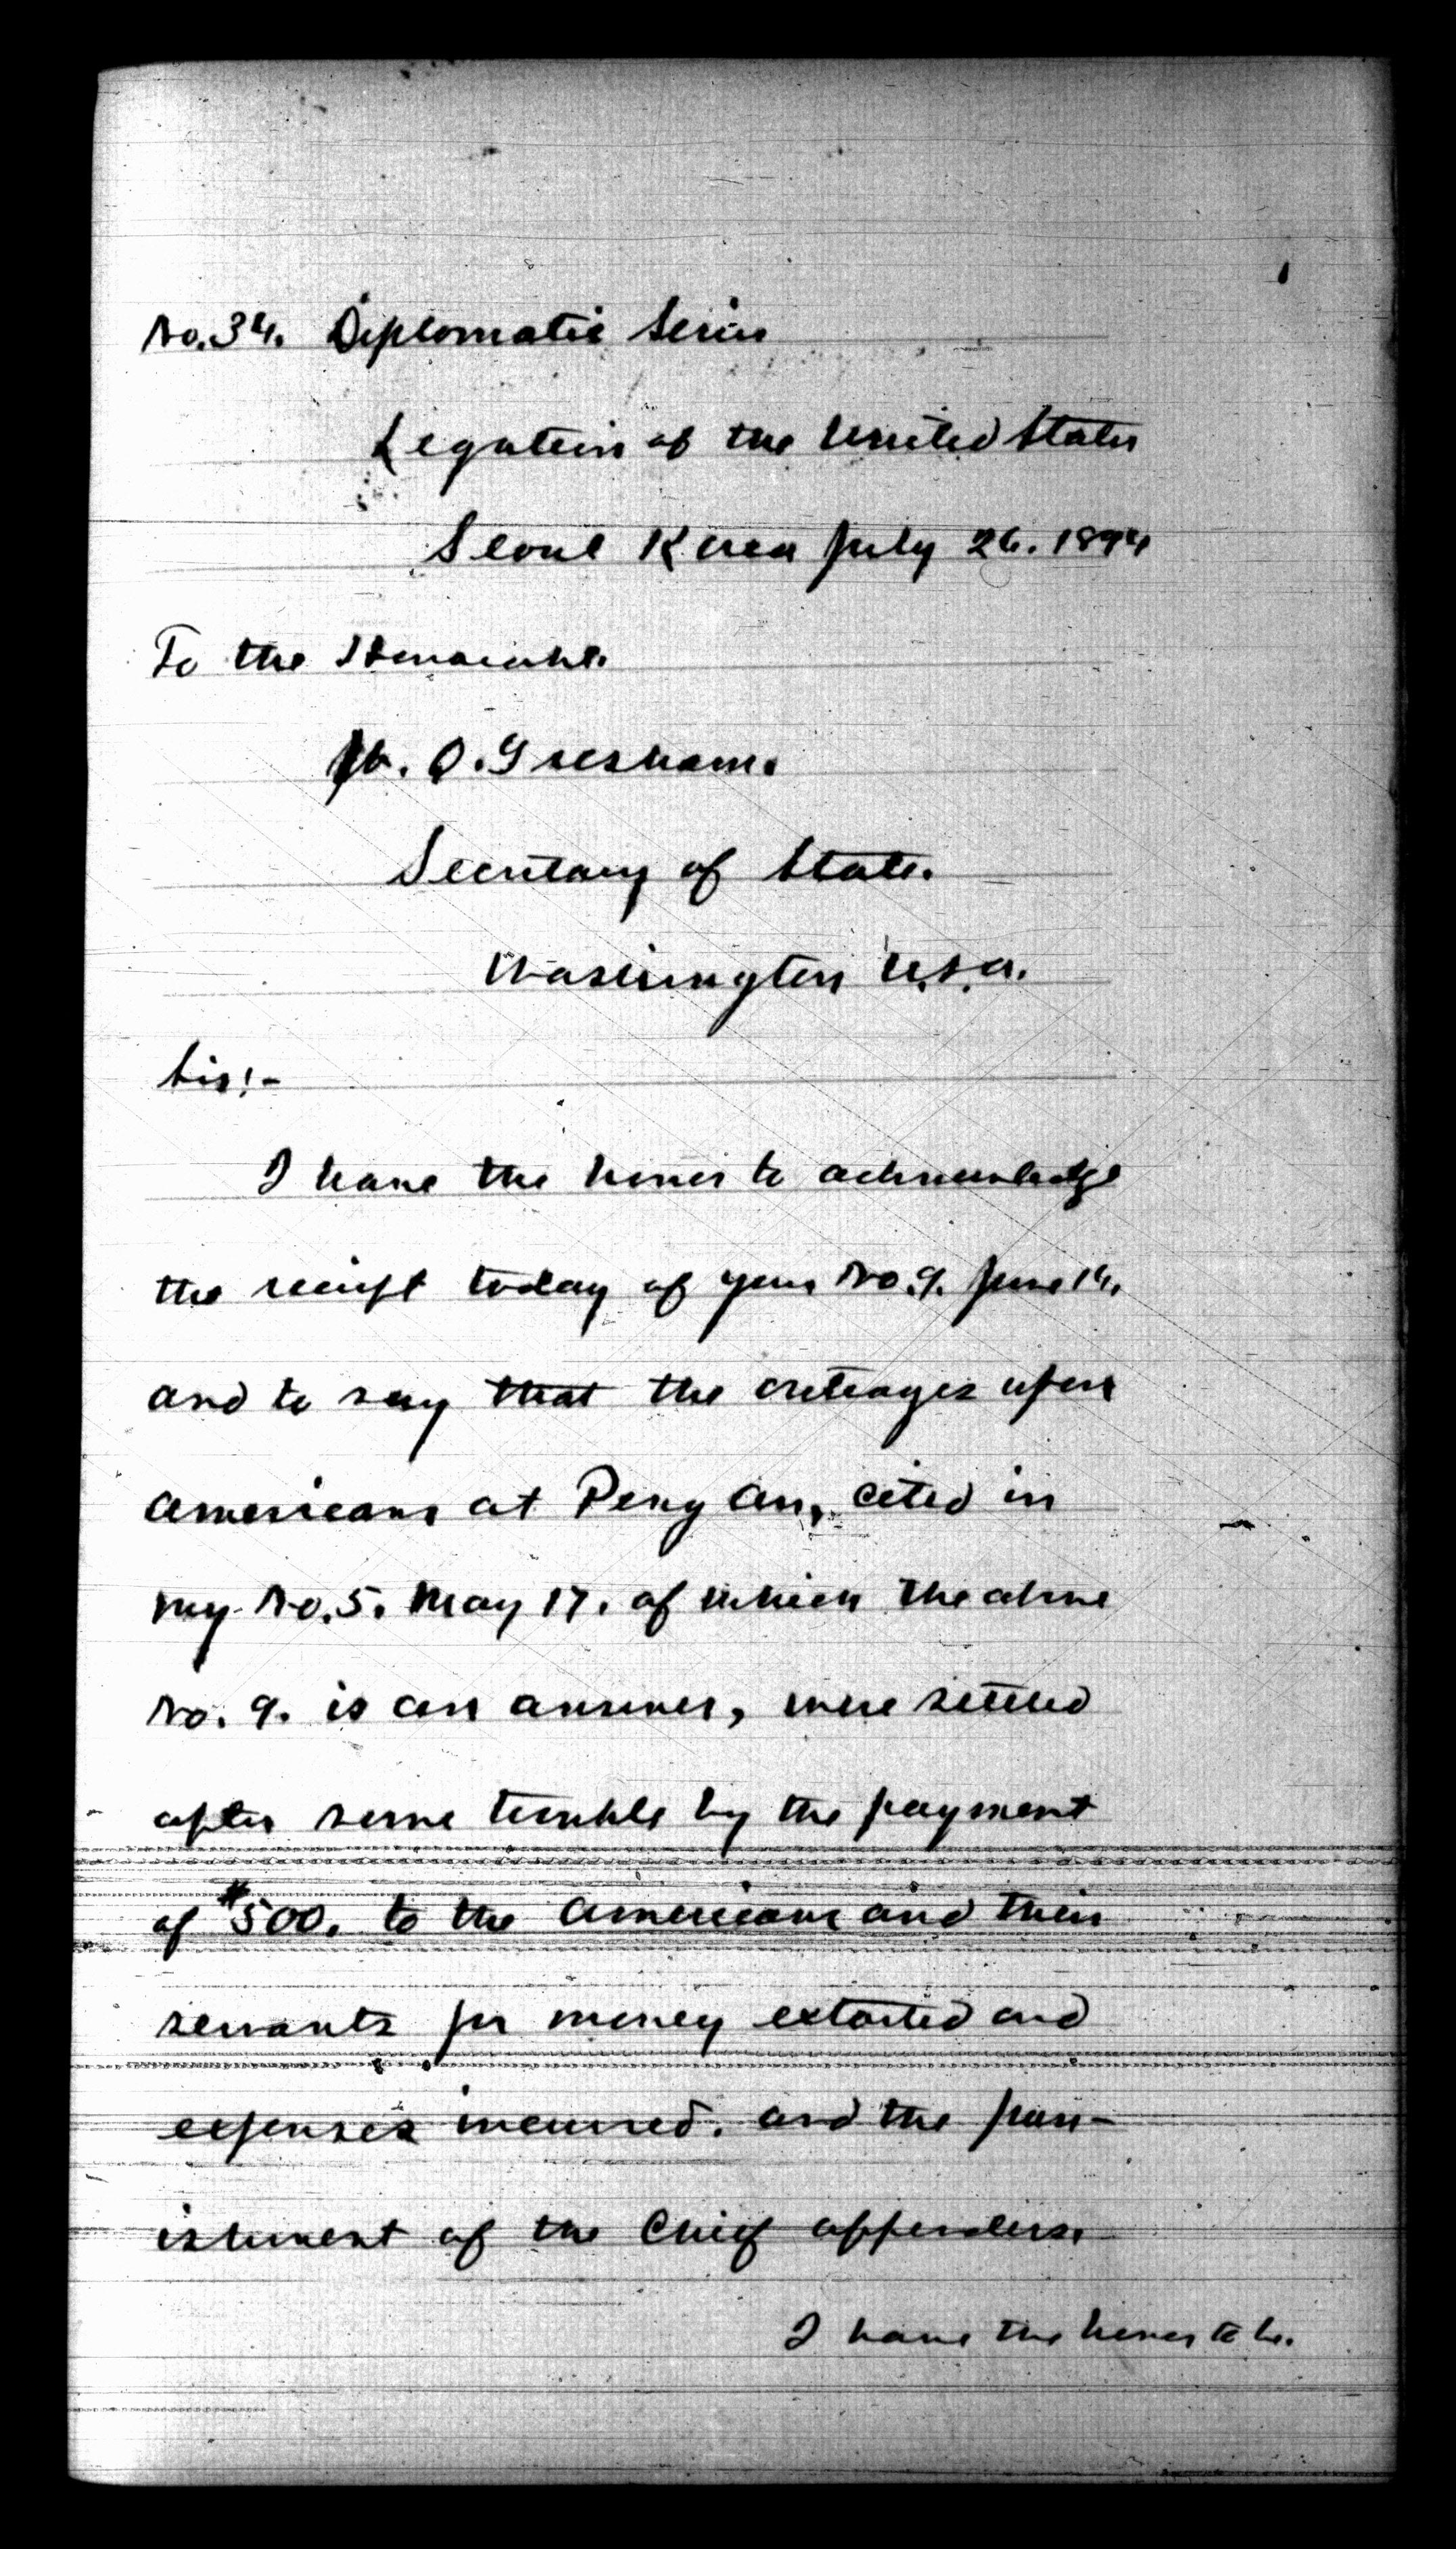 No. 34. Diplomatic Series
Legation of the United States
Seoul Korea July 26. 1894
To the Honorable.
W. Q. Gresham.
Secretary of State.
Washington U.S.A.
Sir:-
I have the honor to acknowledge
the receipt today of your No. 9. June 14.
and to say that the outrages upon
Americans at Peng An, cited in
my No. 5. May 17. of which the above
No. 9. is an answer, were settled
after some trouble by the payment
of $500. to the Americans and their
servants for money extorted and
expenses incurred. and the pun-
ishment of the Chief offenders.
I have the honor to be.